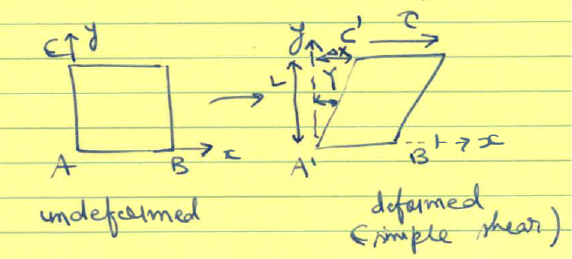 C y
A B x
undeformed
y Δx C' τ
L γ
A' B' x
deformed
(simple shear)